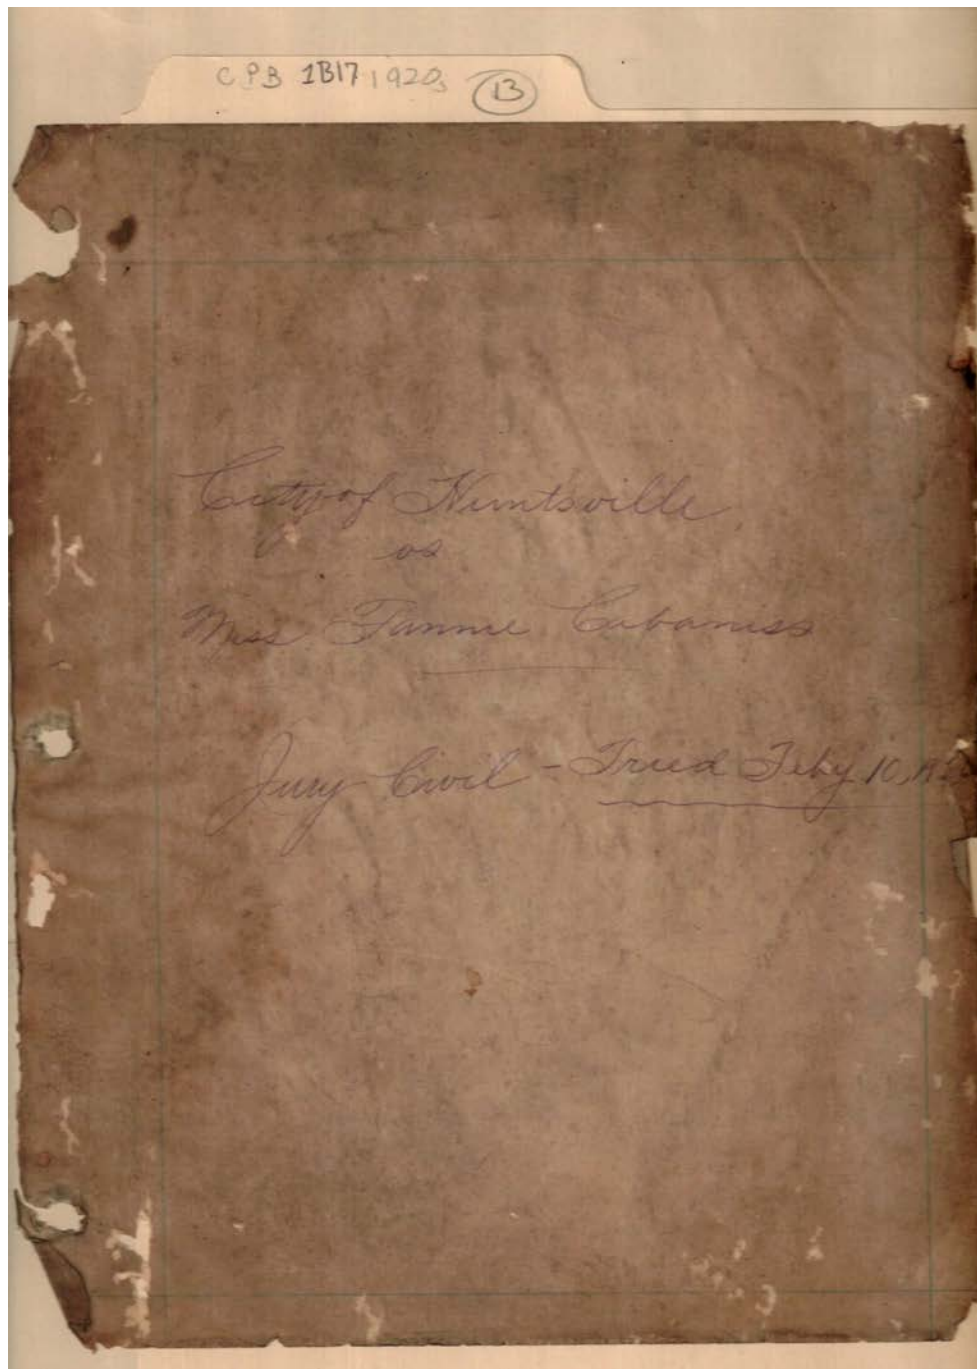 CPB 1B17 1920s 13
City of Huntsville
vs
Miss Fannie Cabaniss
Jury Civil - Tried Feby 10,